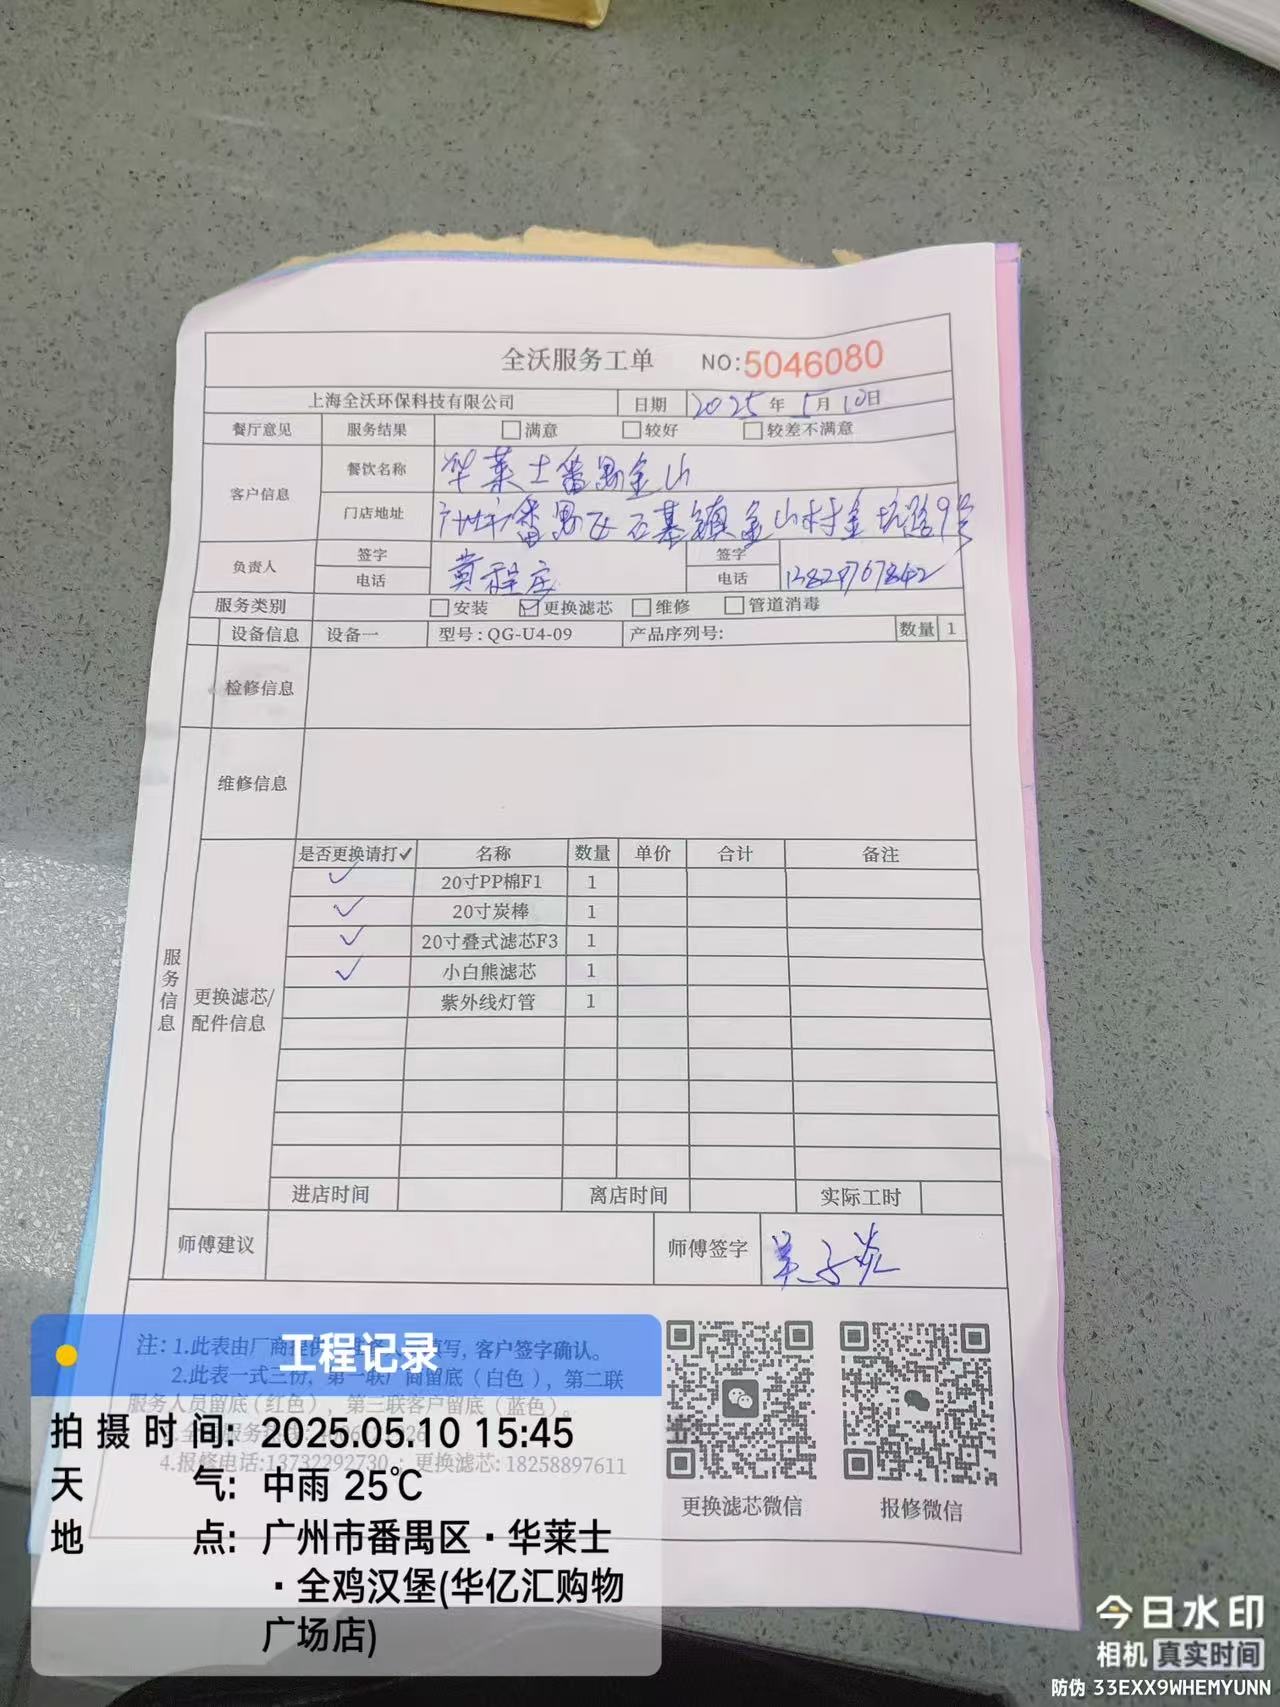 全沃服务工单 NO:5046080
上海全沃环保科技有限公司 日期 2025年5月10日
餐厅意见 服务结果 满意 较好 较差不满意
客户信息 餐饮名称 华莱士番禺金山
门店地址 广州市番禺区石基镇金山村金坑路9号
负责人 签字 签字
电话 电话 13829767842
服务类别 安装 更换滤芯 维修 管道消毒
设备信息 设备一 型号:QG-U4-09 产品序列号: 数量 1
检修信息
维修信息
服务信息
更换滤芯/
配件信息
是否更换请打✓ 名称 数量 单价 合计 备注
✓ 20寸PP棉F1 1
✓ 20寸炭棒 1
✓ 20寸叠式滤芯F3 1
✓ 小白熊滤芯 1
紫外线灯管 1
进店时间 离店时间 实际工时
师傅建议 师傅签字
注:1.此表由厂商提供 填写,客户签字确认。
2.此表一式三份,第一联厂商留底(白色),第二联
服务人员留底(红色),第三联客户留底(蓝色)。
4.报修电话:13732292730 ; 更换滤芯:18258897611
更换滤芯微信 报修微信
工程记录
拍摄时间: 2025.05.10 15:45
天气: 中雨 25℃
地点: 广州市番禺区·华莱士
·全鸡汉堡(华亿汇购物
广场店)
今日水印
相机 真实时间
防伪 33EXX9WHEMYUNN